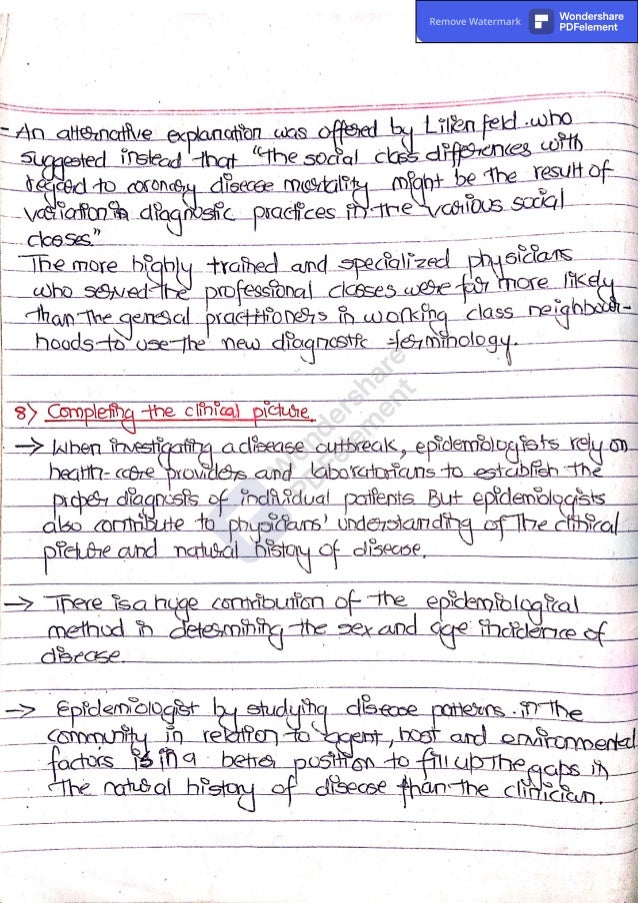 Remove Watermark
Wondershare
PDFelement
- An alternative explanation was offered by Lilienfeld who
suggested instead that "the social class differences with
regard to coronary disease mortality might be the result of
variation in diagnostic practices in the various social
classes."
The more highly trained and specialized physicians
who served the professional classes were far more likely
than the general practitioners in working class neighbour-
hoods to use the new diagnostic terminology.
8) Completing the clinical picture.
→ When investigating a disease outbreak, epidemiologists rely on
health-care providers and laboratorians to establish the
proper diagnosis of individual patients. But epidemiologists
also contribute to physicians' understanding of the clinical
picture and natural history of disease.
→ There is a huge contribution of the epidemiological
method in determining the sex and age incidence of
disease.
→ Epidemiologist by studying disease patterns in the
community in relation to agent, host and environmental
factors is in a better position to fill up the gaps in
the natural history of disease than the clinician.
Wondershare
PDFelement